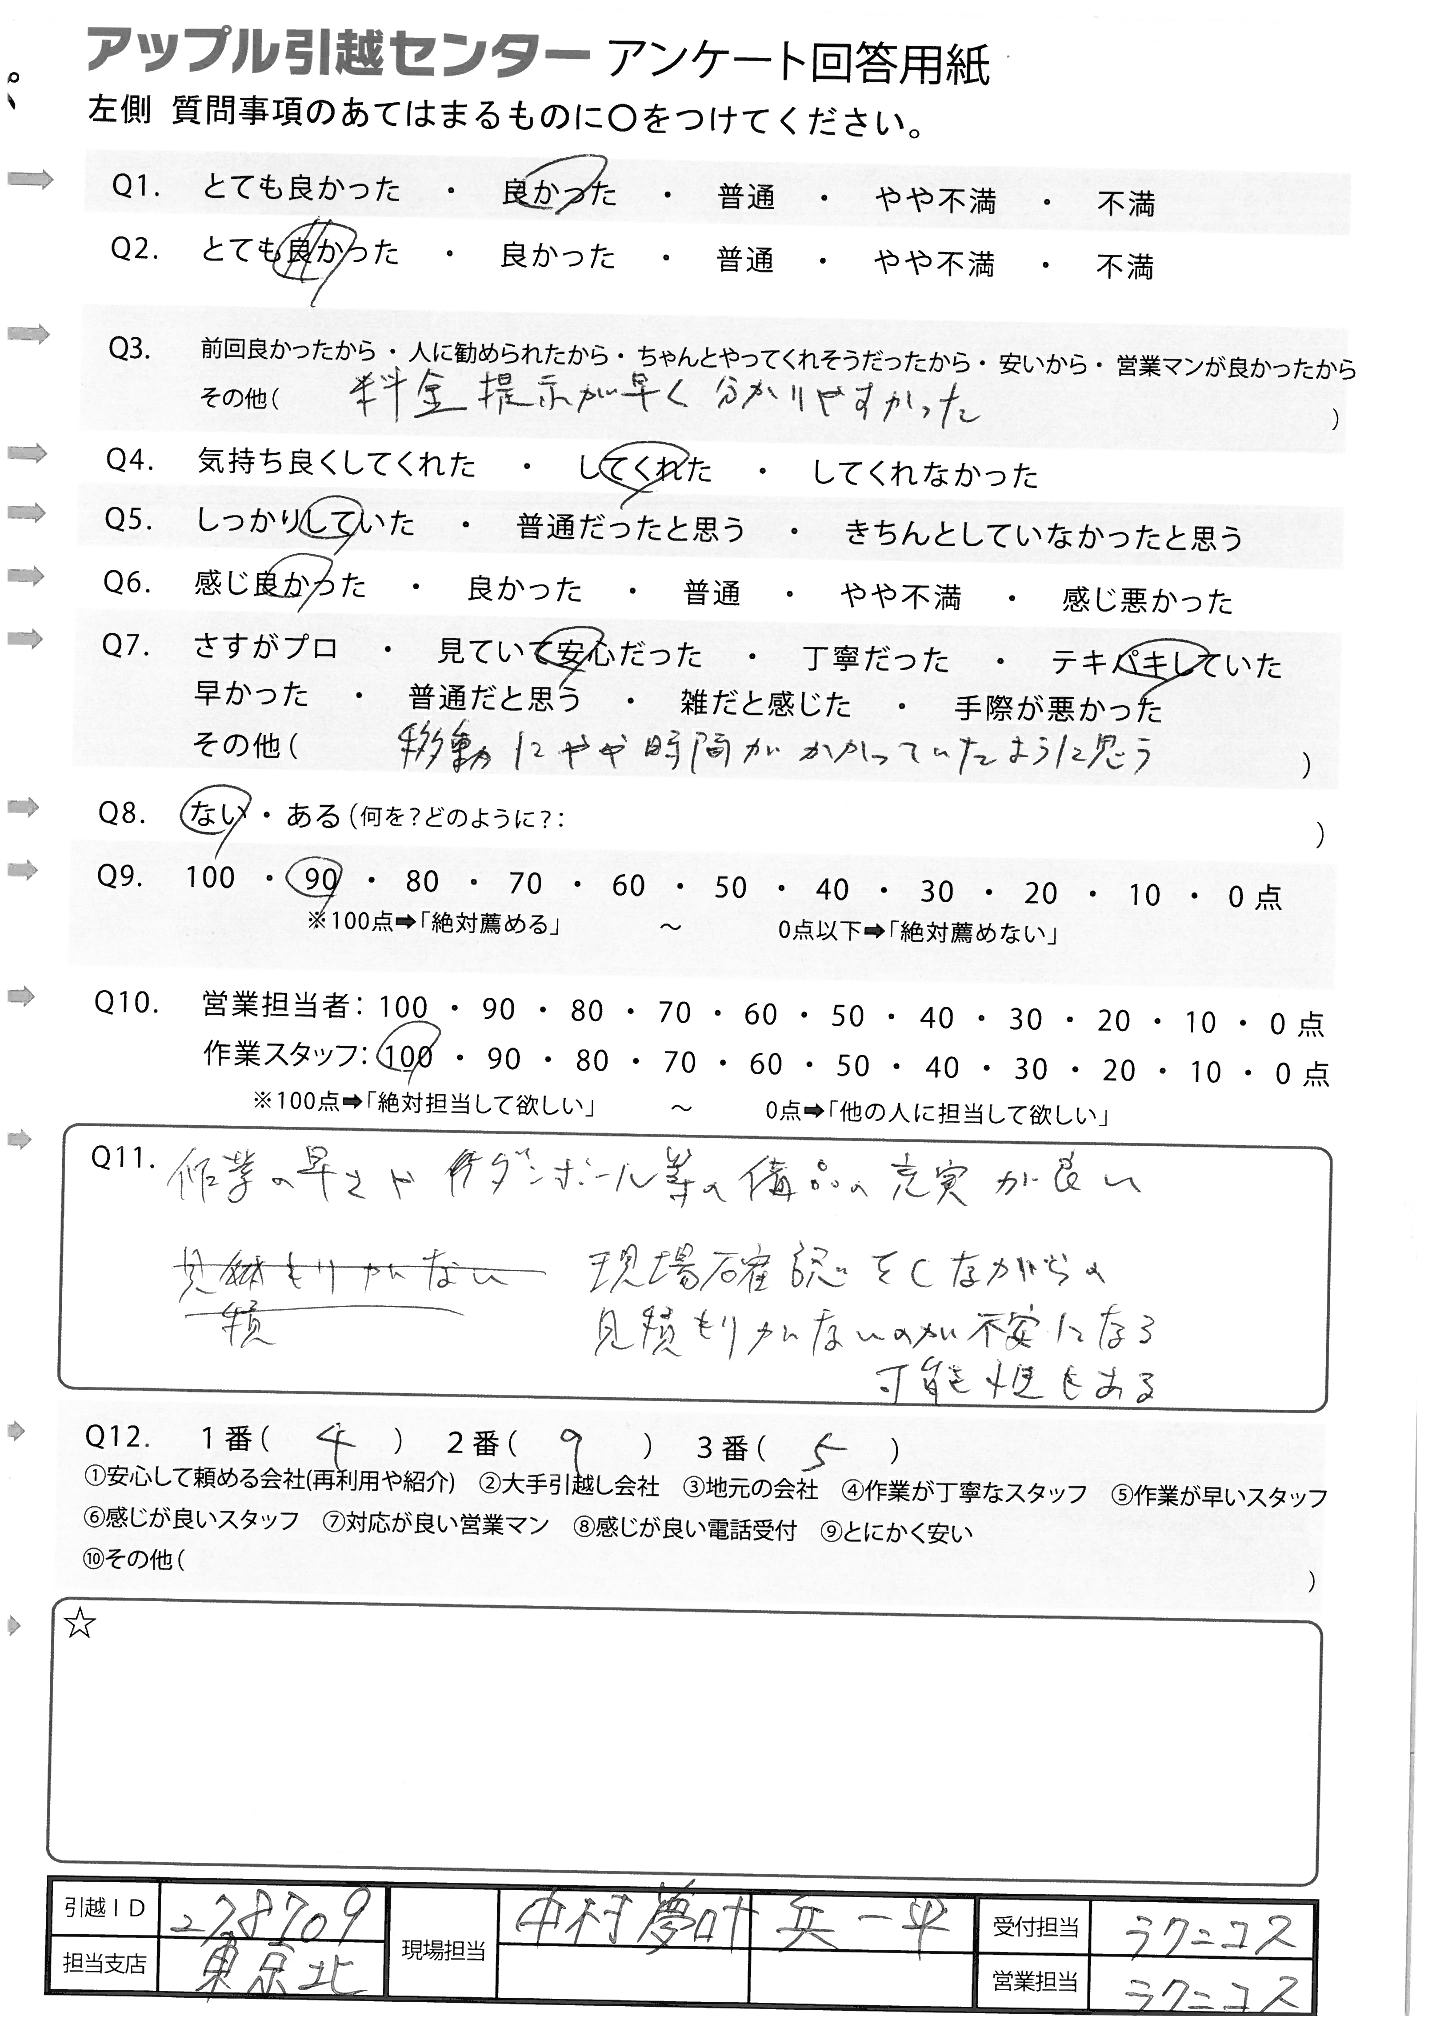 アップル引越センター アンケート回答用紙
左側 質問事項のあてはまるものに○をつけてください。
Q1. とても良かった ・ 良かった ・ 普通 ・ やや不満 ・ 不満
Q2. とても良かった ・ 良かった ・ 普通 ・ やや不満 ・ 不満
Q3. 前回良かったから・人に勧められたから・ちゃんとやってくれそうだったから・安いから・営業マンが良かったから
その他( 料金提示が早く分かりやすかった )
Q4. 気持ち良くしてくれた ・ してくれた ・ してくれなかった
Q5. しっかりしていた ・ 普通だったと思う ・ きちんとしていなかったと思う
Q6. 感じ良かった ・ 良かった ・ 普通 ・ やや不満 ・ 感じ悪かった
Q7. さすがプロ ・ 見ていて安心だった ・ 丁寧だった ・ テキパキしていた
早かった ・ 普通だと思う ・ 雑だと感じた ・ 手際が悪かった
その他( 移動にやや時間がかかっていたように思う )
Q8. ない・ある(何を?どのように?: )
Q9. 100 ・ 90 ・ 80 ・ 70 ・ 60 ・ 50 ・ 40 ・ 30 ・ 20 ・ 10 ・ 0点
※100点➡「絶対薦める」 ～ 0点以下➡「絶対薦めない」
Q10. 営業担当者: 100 ・ 90 ・ 80 ・ 70 ・ 60 ・ 50 ・ 40 ・ 30 ・ 20 ・ 10 ・ 0点
作業スタッフ: 100 ・ 90 ・ 80 ・ 70 ・ 60 ・ 50 ・ 40 ・ 30 ・ 20 ・ 10 ・ 0点
※100点➡「絶対担当して欲しい」 ～ 0点➡「他の人に担当して欲しい」
Q11. 作業の早さや ダンボール等の備品の充実が良い
現場確認をしながらの
見積もりがないのが不安になる
可能性もある
Q12. 1番( 4 ) 2番( 9 ) 3番( 5 )
①安心して頼める会社(再利用や紹介) ②大手引越し会社 ③地元の会社 ④作業が丁寧なスタッフ ⑤作業が早いスタッフ
⑥感じが良いスタッフ ⑦対応が良い営業マン ⑧感じが良い電話受付 ⑨とにかく安い
⑩その他( )
☆
引越ID 278709 現場担当 中村夢叶 兵一平 受付担当 ラクニコス
担当支店 東京北 営業担当 ラクニコス